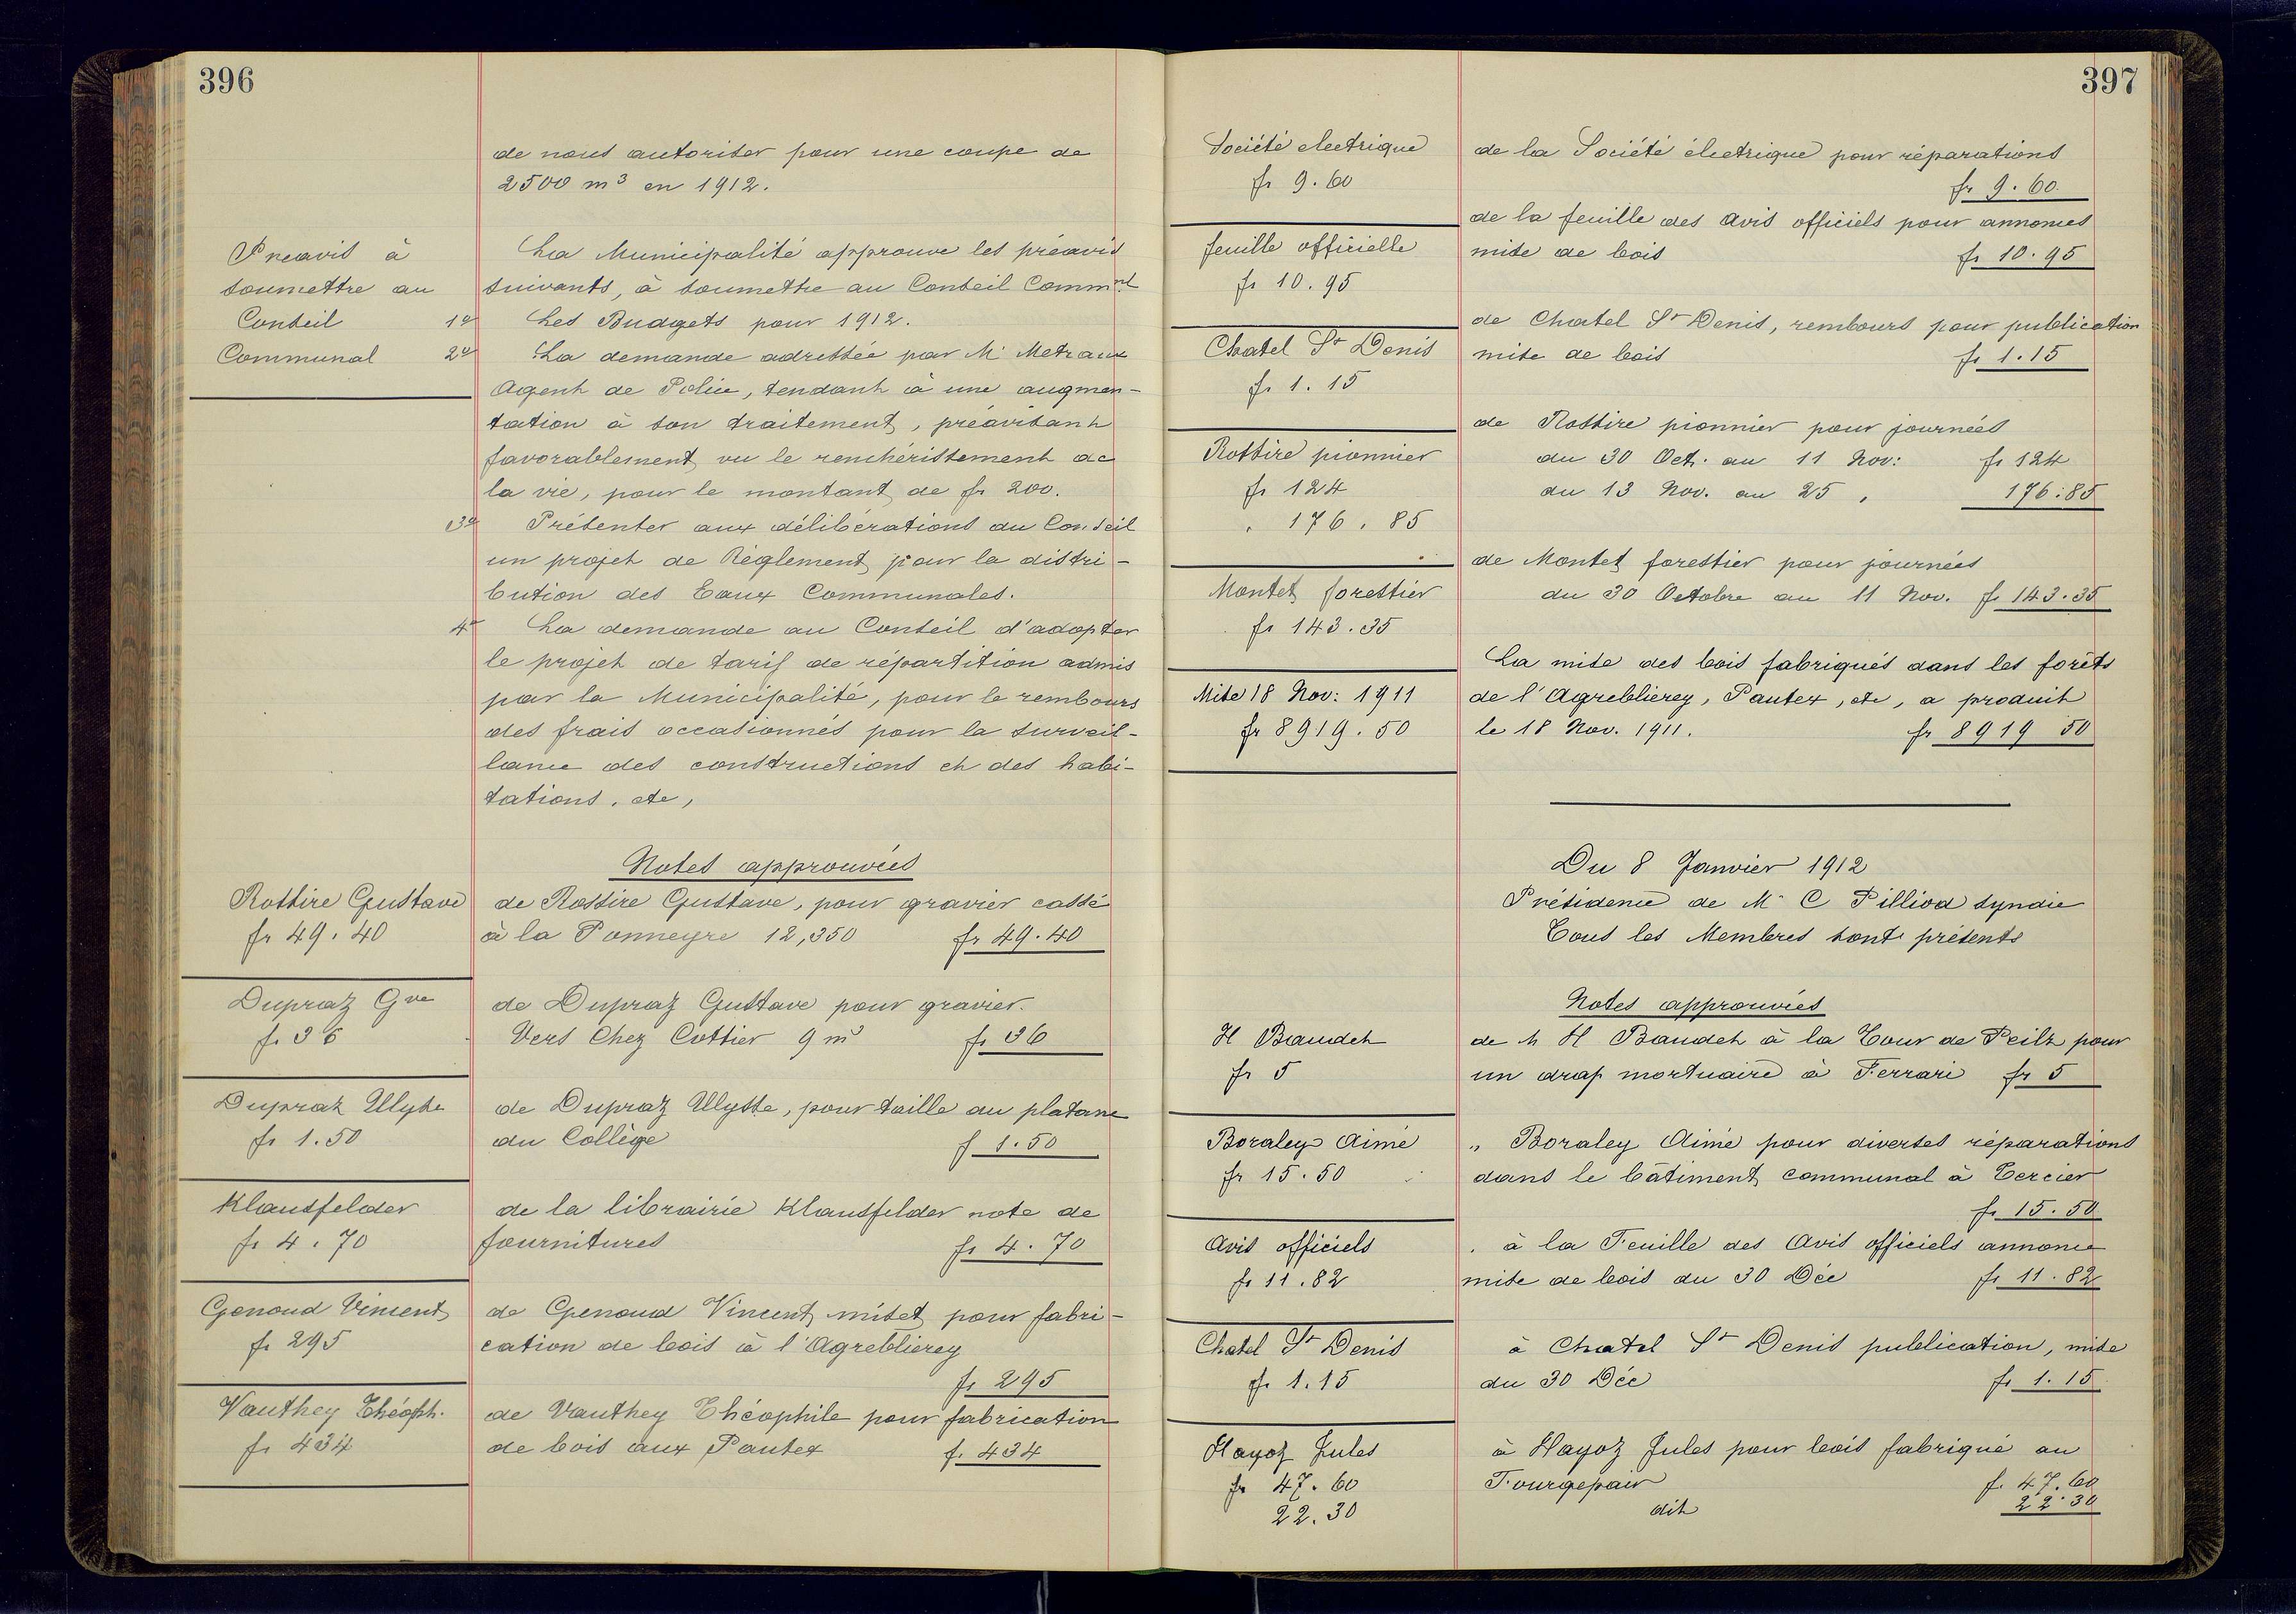 396
de nous autoriser pour une coupe de
2500 m³ en 1912.
Préavis à
soumettre au
Conseil
Communal
La Municipalité approuve les préavis
suivants, à soumettre au Conseil Commnl
1o Les Budgets pour 1912.
2o La demande adressée par M. Metraux
Agent de Police, tendant à une augmen-
tation à son traitement, préavisant
favorablement vu le renchérissement de
la vie, pour le montant de fr 200.
3o Présenter aux délibérations du Conseil
un projet de Règlement pour la distri-
bution des Eaux Communales.
4o La demande au Conseil d'adopter
le projet de tarif de répartition admis
par la Municipalité, pour le rembours
des frais occasionnés pour la surveil-
lance des constructions et des habi-
tations, etc,
Notes approuvées
Rossire Gustave
fr 49.40
de Rossire Gustave, pour gravier cassé
à la Ponneyre 12,350 fr 49.40
Dupraz Gve
fr 36
de Dupraz Gustave pour gravier.
Vers Chez Cottier 9 m³ fr 36
Dupraz Ulysse
fr 1.50
de Dupraz Ulysse, pour taille du platane
du Collège f 1.50
Klausfelder
fr 4.70
de la librairie Klausfelder note de
fournitures fr 4.70
Genoud Vincent
fr 295
de Genoud Vincent, mises pour fabri-
cation de bois à l'Agreblierey
fr 295
Vauthey Théoph.
fr 434
de Vauthey Théophile pour fabrication
de bois aux Pautex f. 434
397
Société electrique
fr 9.60
de la Société électrique pour réparations
fr 9.60
feuille officielle
fr 10.95
de la feuille des avis officiels pour annonces
mise de bois fr 10.95
Chatel St Denis
fr 1.15
de Chatel St Denis, rembours pour publication
mise de bois fr 1.15
Rossire pionnier
fr 124
" 176.85
de Rossire pionnier pour journées
du 30 Oct. au 11 Nov: fr 124
du 13 Nov. au 25 " 176:85
Montet forestier
fr 143.35
de Montet forestier pour journées
du 30 Octobre au 11 Nov. fr 143.35
Mise 18 Nov: 1911
fr 8919.50
La mise des bois fabriqués dans les forêts
de l'Agreblierey, Pautex, etc, a produit
le 18 Nov. 1911. fr 8919 50
Du 8 Janvier 1912
Présidence de M. C Pilliod syndic
Tous les Membres sont présents
Notes approuvées
H Baudet
fr 5
de M H Baudet à la Tour de Peilz pour
un drap mortuaire à Ferrari fr 5
Boraley Aimé
fr 15.50
" Boraley Aimé pour diverses réparations
dans le bâtiment communal à Tercier
fr 15.50
Avis officiels
fr 11.82
" à la Feuille des Avis officiels annonce
mise de bois du 30 Déc fr 11.82
Chatel St Denis
fr 1.15
à Chatel St Denis publication, mise
du 30 Déc fr 1.15
Hayoz Jules
fr 47.60
22.30
à Hayoz Jules pour bois fabriqué au
Fourgepair f. 47.60
dit 22.30